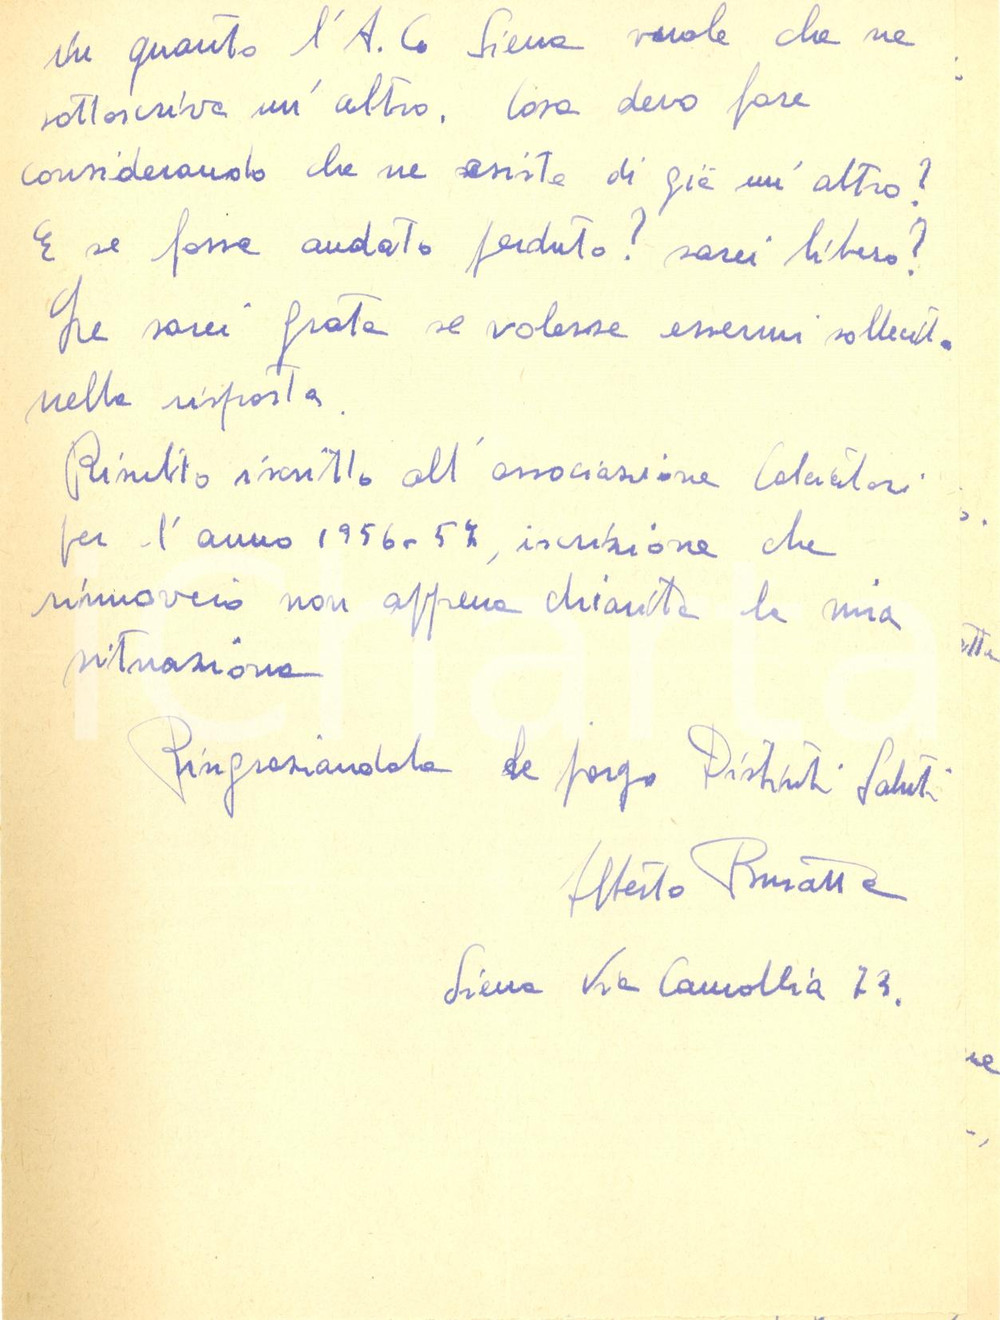 in quanto l'A.C. Siena vuole che ne
sottoscriva un'altro. Cosa devo fare
considerando che ne esiste di già un'altro?
E se fosse andato perduto? sarei libero?
Le sarei grato se volesse essermi sollecito
nella risposta.
Risulto iscritto all'associazione Calciatori
per l'anno 1956-57, iscrizione che
rinnoverò non appena chiarita la mia
situazione
Ringraziandola le porgo Distinti Saluti
Alberto Busatta
Siena Via Camollia 73.
iCharta